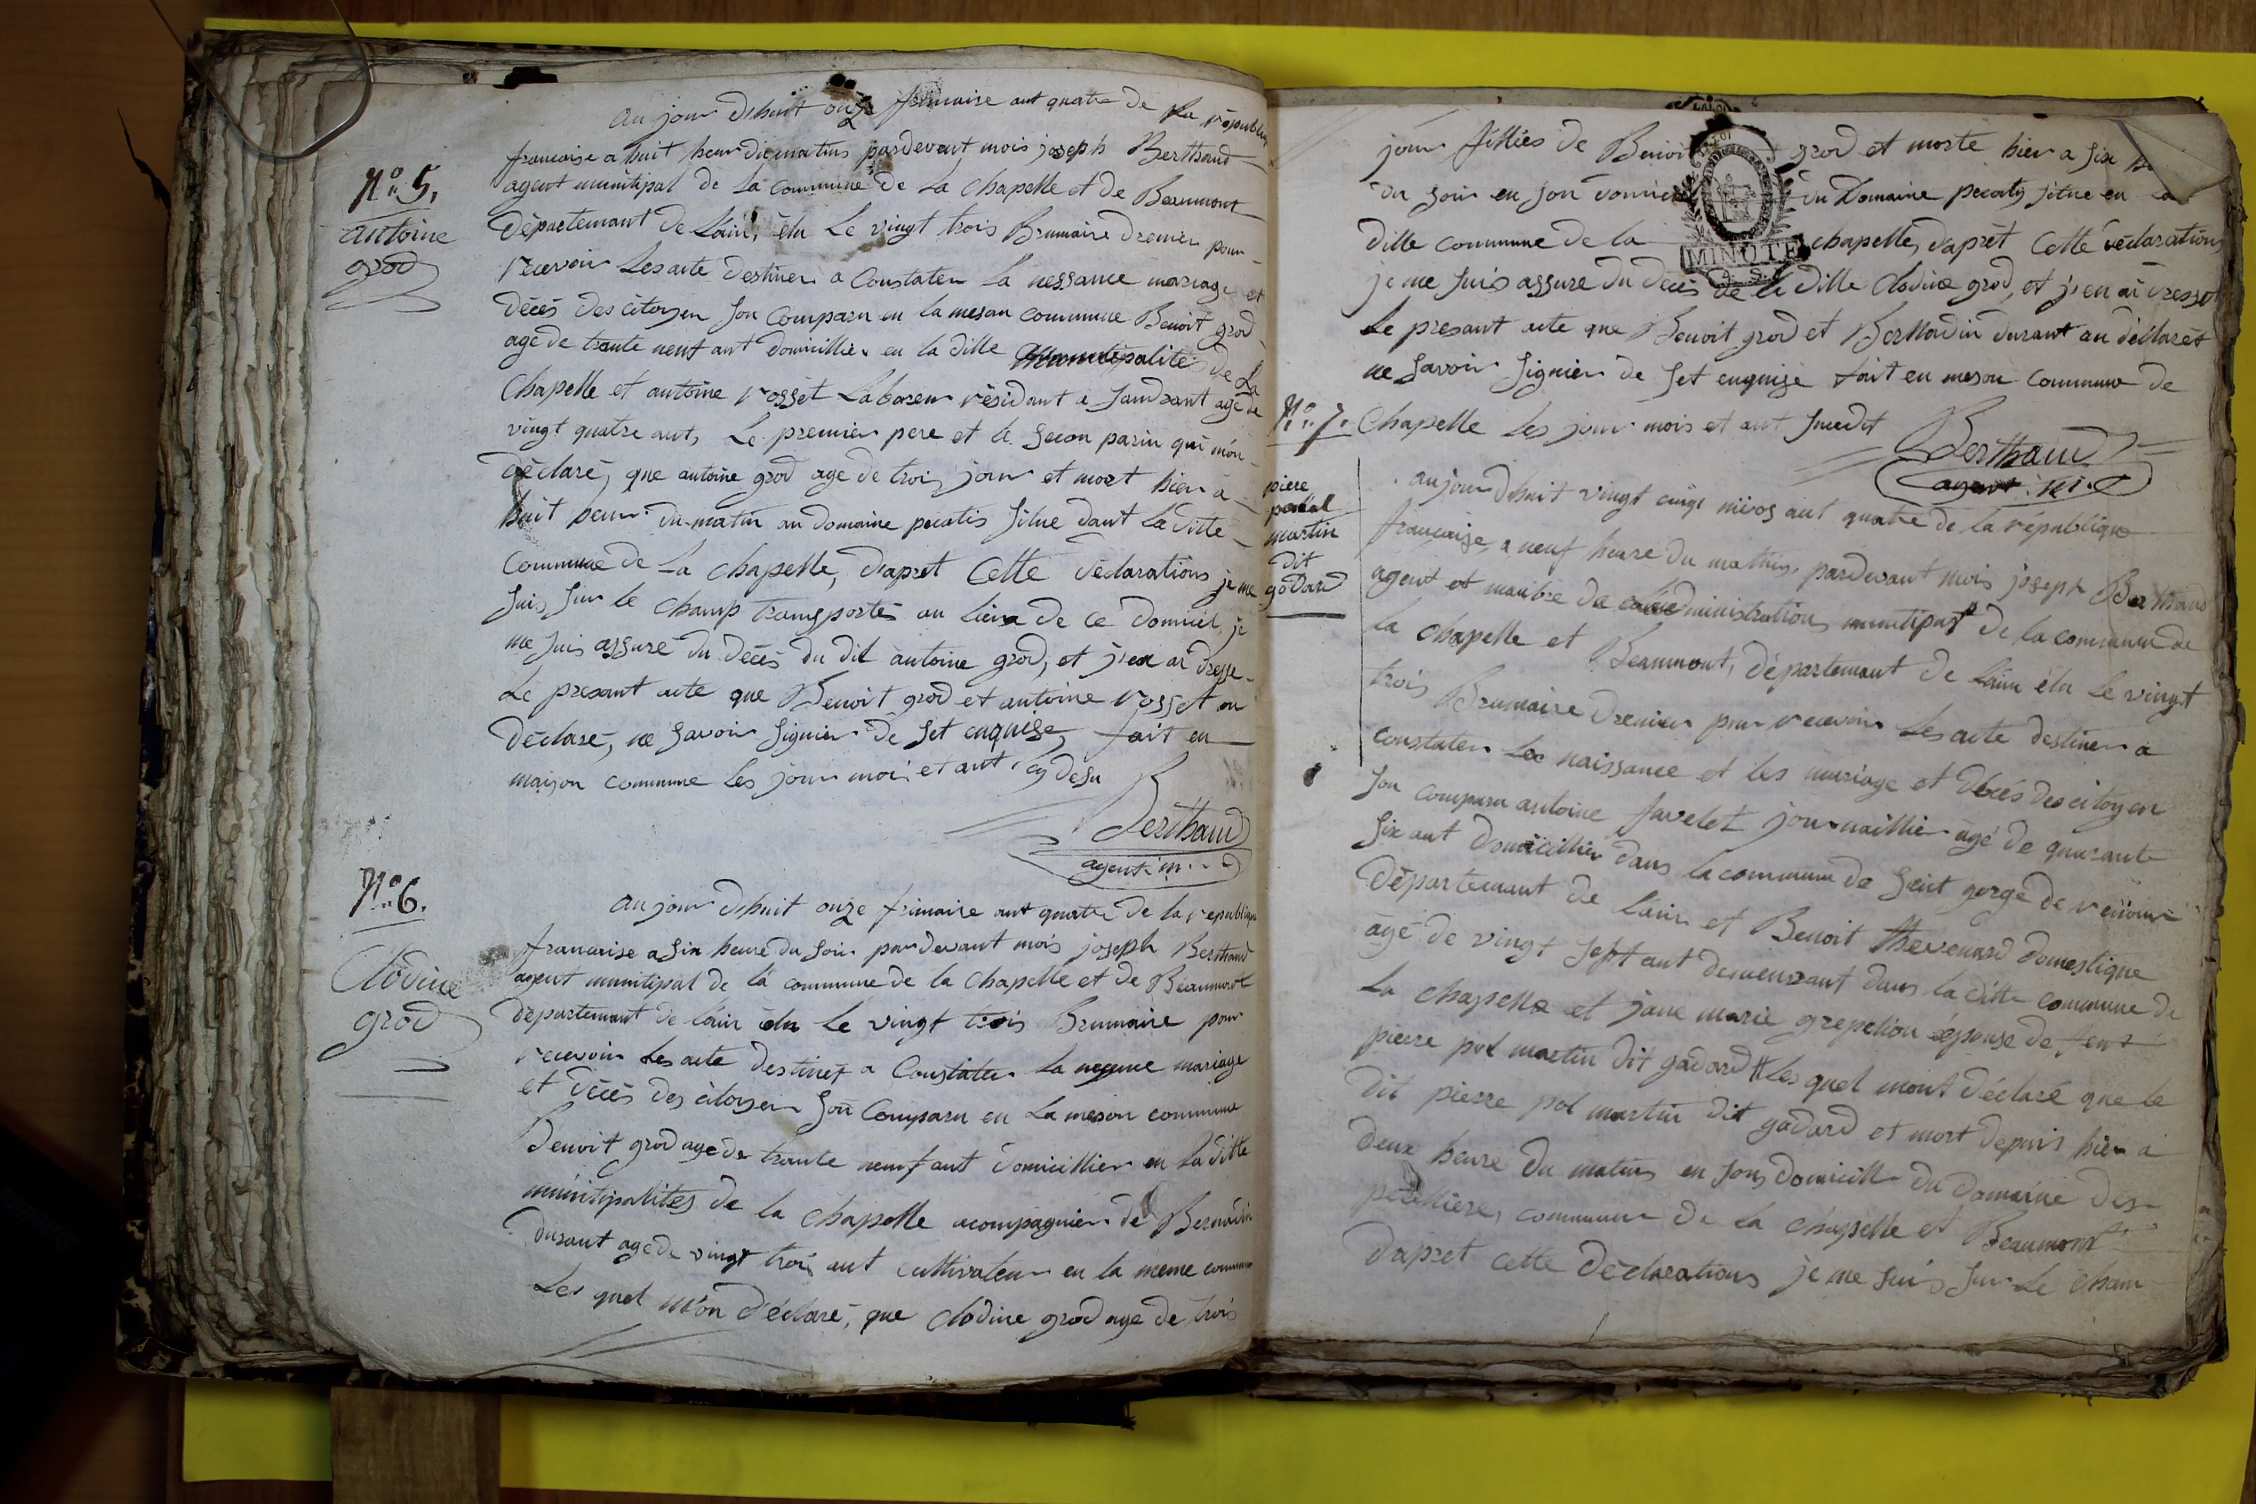 au jour dhuit onze frimaire ant quatre de la républiq
francoise a huit heur du matins pardevent mois joseph Berthaud
N.o 5.
agent munitipal de la commune de la chapelle et de Beaumont
antoine
grod
Département de Lain, élu Le vingt trois Brumaire dernier pour
recevoir Les acte destiner a Constater la nessance mariage et
décès des citoyen son comparu en la meson commune Benoit grod
agé de trante neuf ant domicillier en la dille munitipalité de La
chapelle et antoine rosset Laboreur résidant a Sandrant agé de
vingt quatre ant, Le premier pere et le secon parin qui mon
déclaré, que antoine grod age de trois jour et mort hier a
huit heur du matin au domaine pecatis situe dant la ditte
commune de La chapelle, d'apret Cette déclarations je me
suis sur le champ transportes au lieux de ce domiciel, je
me suis assuré du décès du dit antoine grod, et j'en ai dresse
Le presant acte que Benoit grod et antoine rosset on
déclaré, ne savoir signier de set enquise, fait en
maison commune les jour moi et ant cy desu
Berthaud
agent m.
N.o 6.
au jour dhuit onze frimaire ant quatre de la republiqu
Clodine
grod
francoise a six heure du soir par devant mois joseph Berthaud
agent munitipal de la commune de la chapelle et de Beaumont
departemant de lain élu le vingt trois Brumaire pour
recevoir les acte destinez a Constater la mariage
et décès des citoyen son Comparu en la meson commune
Benoit grod age de trante neuf ant domicillier en la ditte
munitipalites de la chapelle acompagnier de Bernadin
durant age de vingt trois ant cultivateur en la meme commune
Les quel m'on déclaré, que clodine grod age de trois
jour filliés de Benoit grod et morte hier a six
du soir en son domicie du Domaine pecatis situe en la
dille commune de la chapelle, daprèt Cette déclaration
MINUTE
je me suis assure du deces de la dille Clodine grod, et j'en ai dresse
Le presant acte que Benoit grod et Bernadin durant on déclarés
ne savoir signier de set enquise fait en meson commune de
N.o 7. Chapelle les jour mois et ant susdit
Berthaud
agent m.
piere
potal
martin
dit
godard
au jour dhuit vingt cinqt nivos ant quatre de la république
francoise, a neuf heure du mathin, pardevant mois joseph Berthaud
agent et manbre de administration munitipal de la commune de
la chapelle et Beaumont, département de Lain élu le vingt
trois Brumaire dernier pour recevoir Les acte destiner a
constater Les naissance et les mariage et décés des citoyen
son comparu antoine Favelet journaillier agé de quarante
six ant domicillier dans la commune de Seint gorge de
département de l'ain et Benoit thevenard domestique
agé de vingt sept ant demeurant dans la ditte commune de
la chapelle et jane marie grepelion éponse de feu
pierre pol martin dit gadard # les quel mont déclaré que le
dit pierre pol martin dit gadard et mort depuis hier a
deux heure du matins en son domicille du domaine des
commune de la chapelle et Beaumont
d'apret cette declarations je me suis sur Le cham